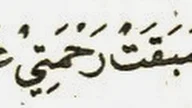 سَبَقَتْ رَحْمَتِيْ